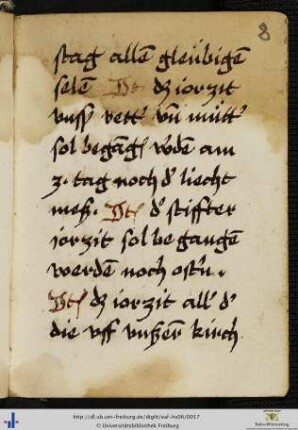 8
stag allen gleubigen
selen It dz iorzit
unss vett vn mutt
sol begāgē wdē am
3. tag noch d liecht
mes. Itē d stiffter
iorzit sol begangen
werden noch ostn.
Itē dz iorzit all d
die uff unsern kirch
http://dl.ub.uni-freiburg.de/diglit/eaf-hs08/0017
© Universitätsbibliothek Freiburg
Baden-Württemberg